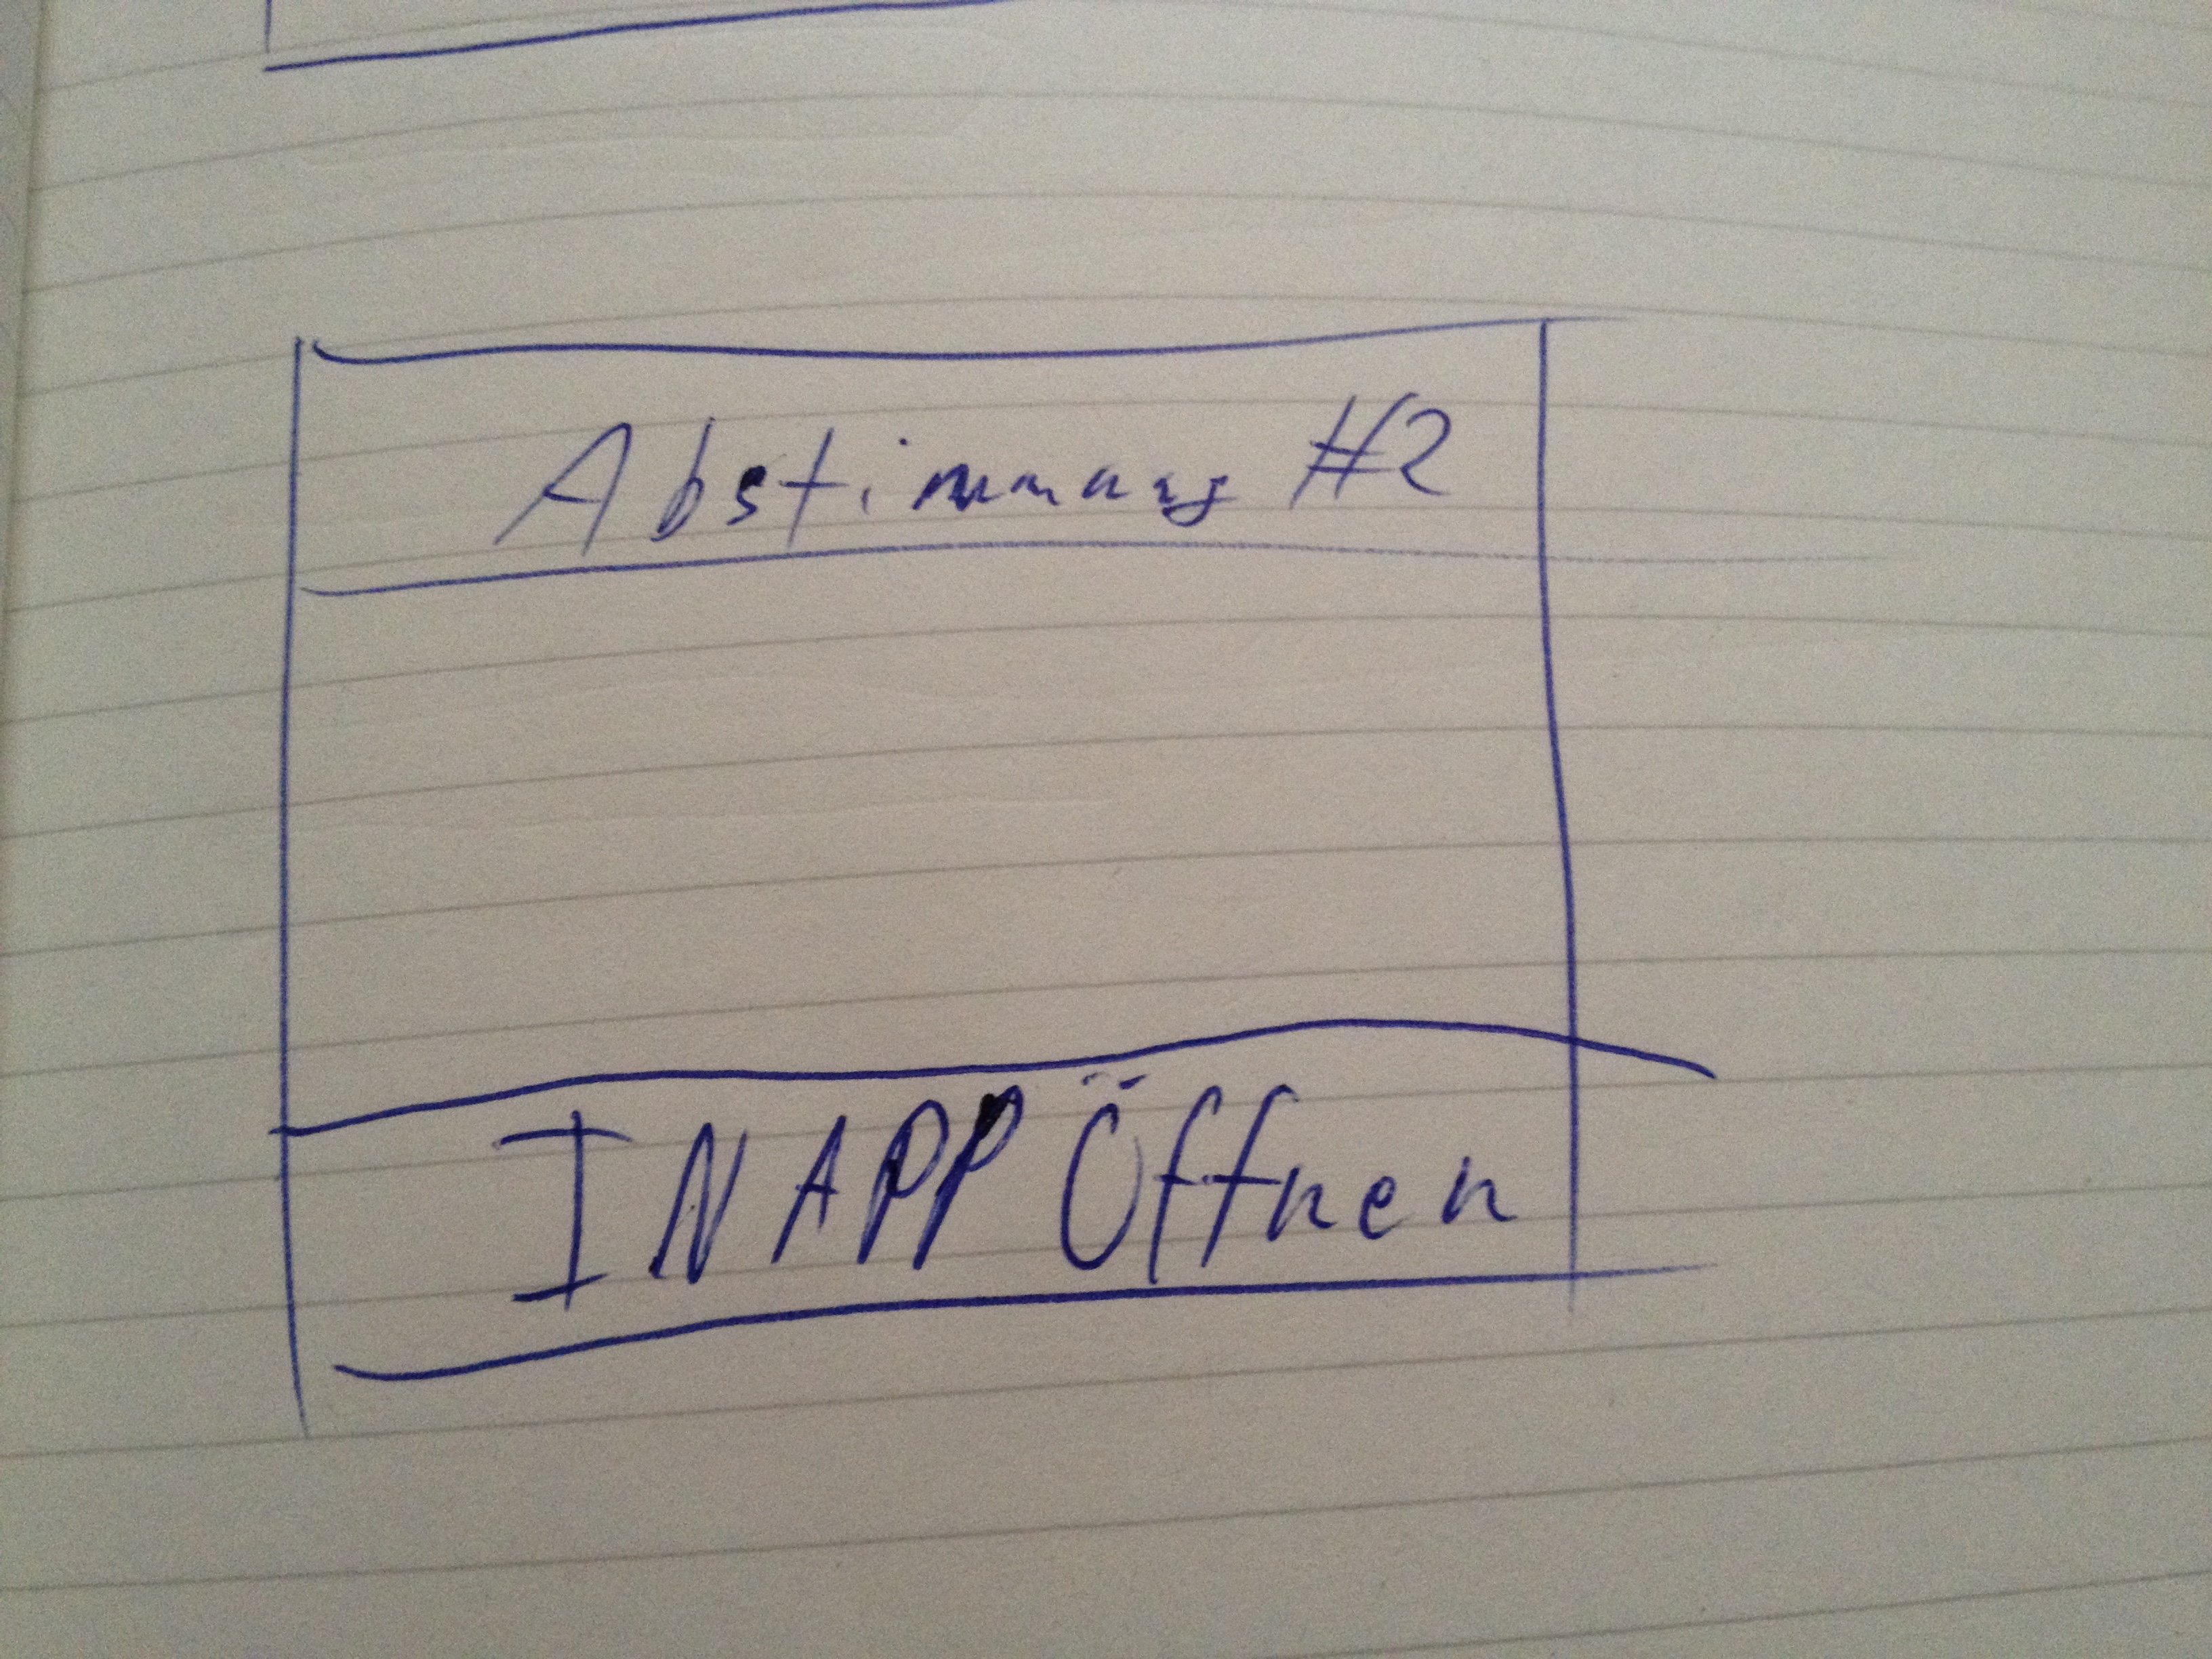 Abstimmung #2
INAPP Öffnen